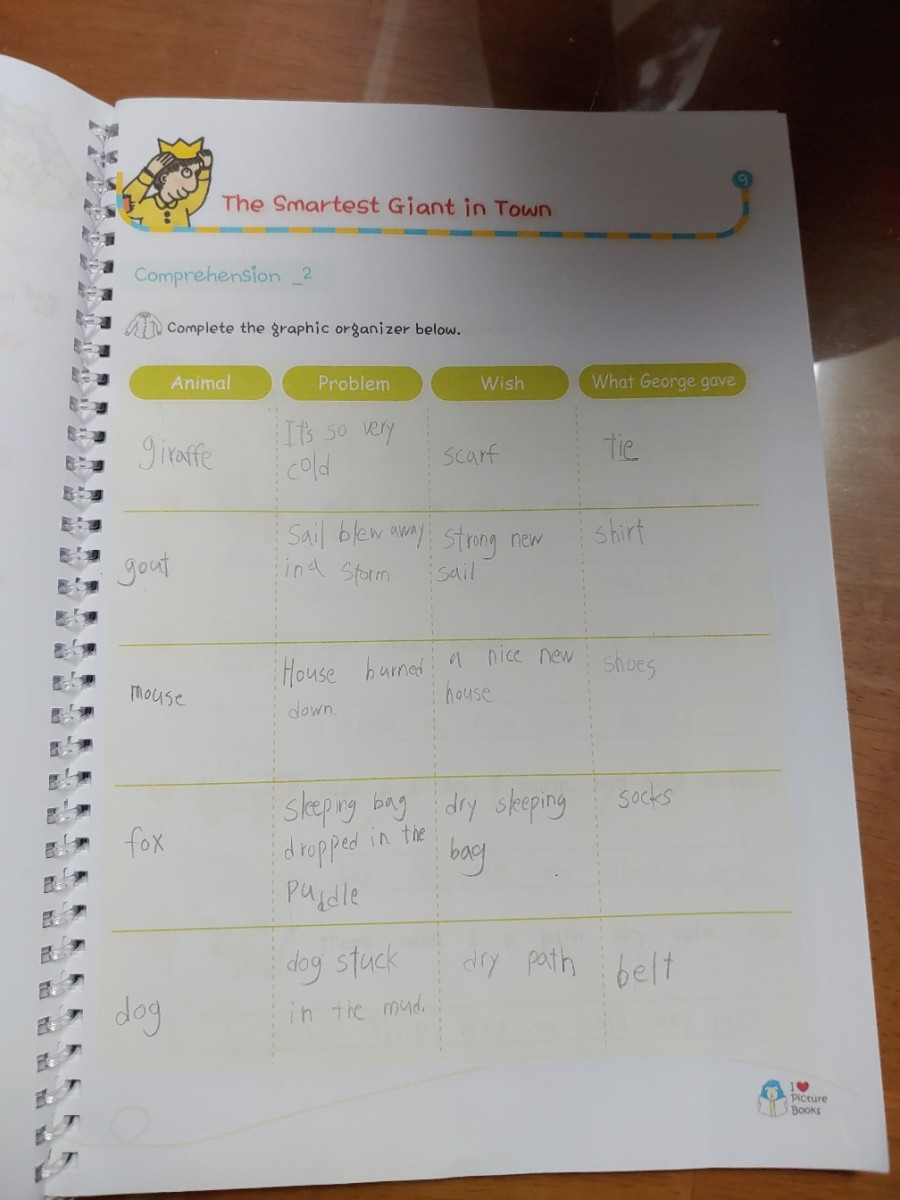 9
The Smartest Giant in Town
Comprehension _2
Complete the graphic organizer below.
Animal Problem Wish What George gave
giraffe
It's so very
cold
scarf
tie
gout
Sail blew away
in a storm
Strong new
sail
shirt
mouse
House burned
down.
a nice new
house
shoes
fox
Sleeping bag
dropped in the
puddle
dry sleeping
bag
socks
dog
dog stuck
in the mud.
dry path
belt
I
Picture
Books